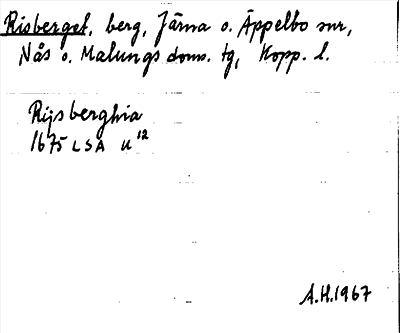 Risberget, berg, Järna o. Äppelbo snr,
Nås o. Malungs doms. tg, Kopp. l.
Rijsberghia
1675 LSA U 12
A.H. 1967